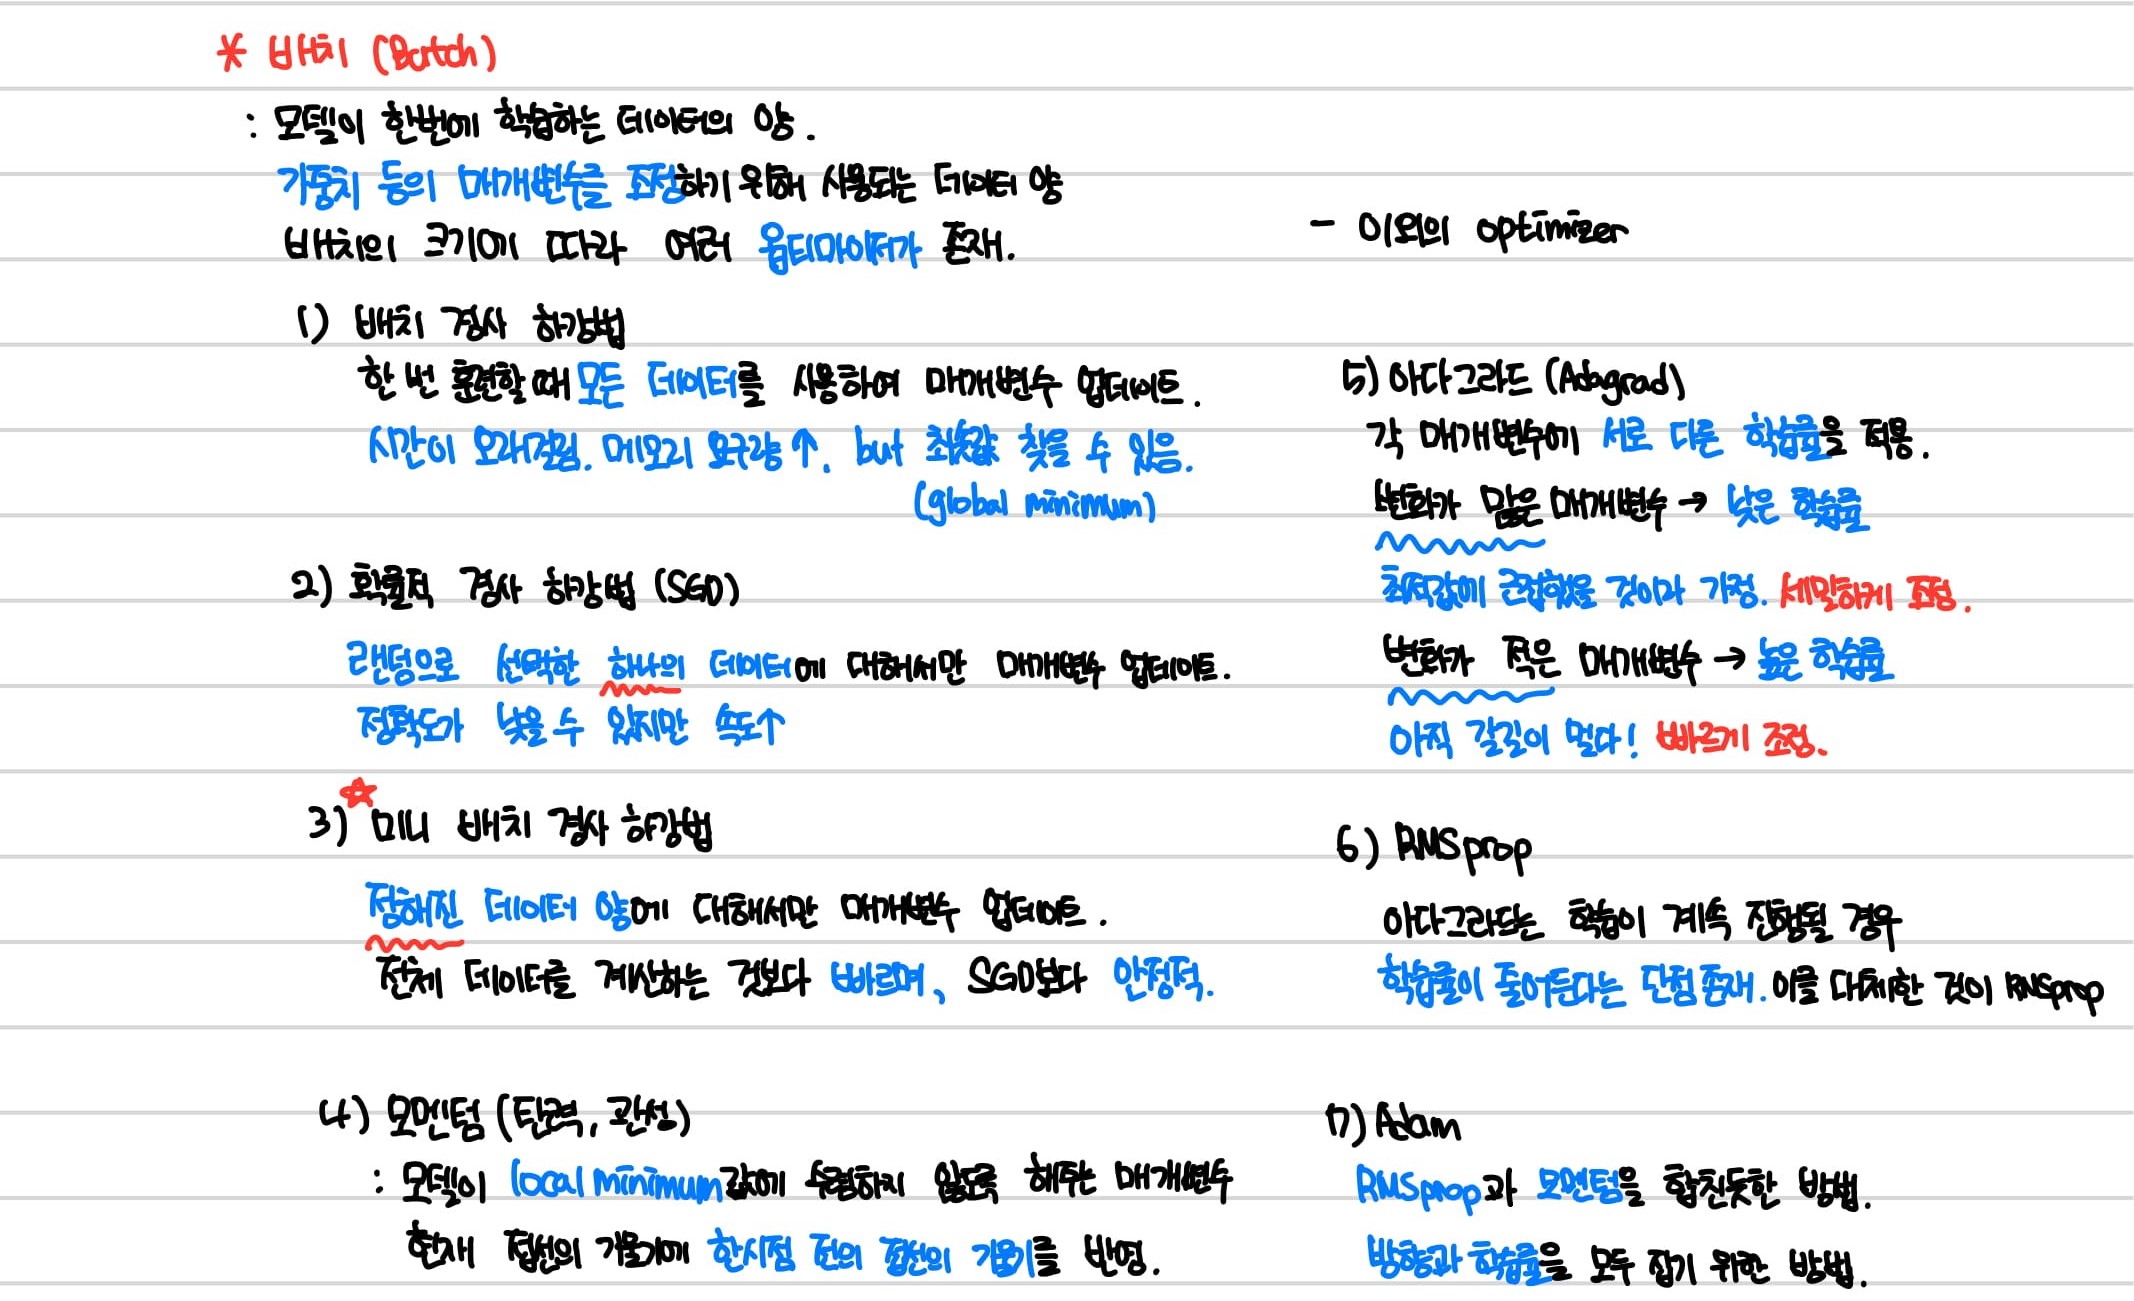 * 배치 (Batch)
: 모델이 한번에 학습하는 데이터의 양.
가중치 등의 매개변수를 조정하기 위해 사용되는 데이터 양
배치의 크기에 따라 여러 옵티마이저가 존재.
1) 배치 경사 하강법
한 번 훈련할 때 모든 데이터를 사용하여 매개변수 업데이트.
시간이 오래걸림. 메모리 요구량↑. but 최솟값 찾을 수 있음.
(global minimum)
2) 확률적 경사 하강법 (SGD)
랜덤으로 선택한 하나의 데이터에 대해서만 매개변수 업데이트.
정확도가 낮을 수 있지만 속도↑
3) ☆ 미니 배치 경사 하강법
정해진 데이터 양에 대해서만 매개변수 업데이트.
전체 데이터를 계산하는 것보다 빠르며, SGD보다 안정적.
4) 모멘텀 (탄력, 관성)
: 모델이 local minimum값에 수렴하지 않도록 해주는 매개변수
현재 접선의 기울기에 한시점 전의 접선의 기울기를 반영.
- 이외의 optimizer
5) 아다그라드 (Adagrad)
각 매개변수에 서로 다른 학습률을 적용.
변화가 많은 매개변수 → 낮은 학습률
최적값에 근접했을 것이라 가정. 세밀하게 조정.
변화가 적은 매개변수 → 높은 학습률
아직 갈길이 멀다! 빠르게 조정.
6) RMSprop
아다그라드는 학습이 계속 진행될 경우
학습률이 줄어든다는 단점 존재. 이를 대체한 것이 RMSprop
7) Adam
RMSprop과 모멘텀을 합친듯한 방법.
방향과 학습률을 모두 잡기 위한 방법.